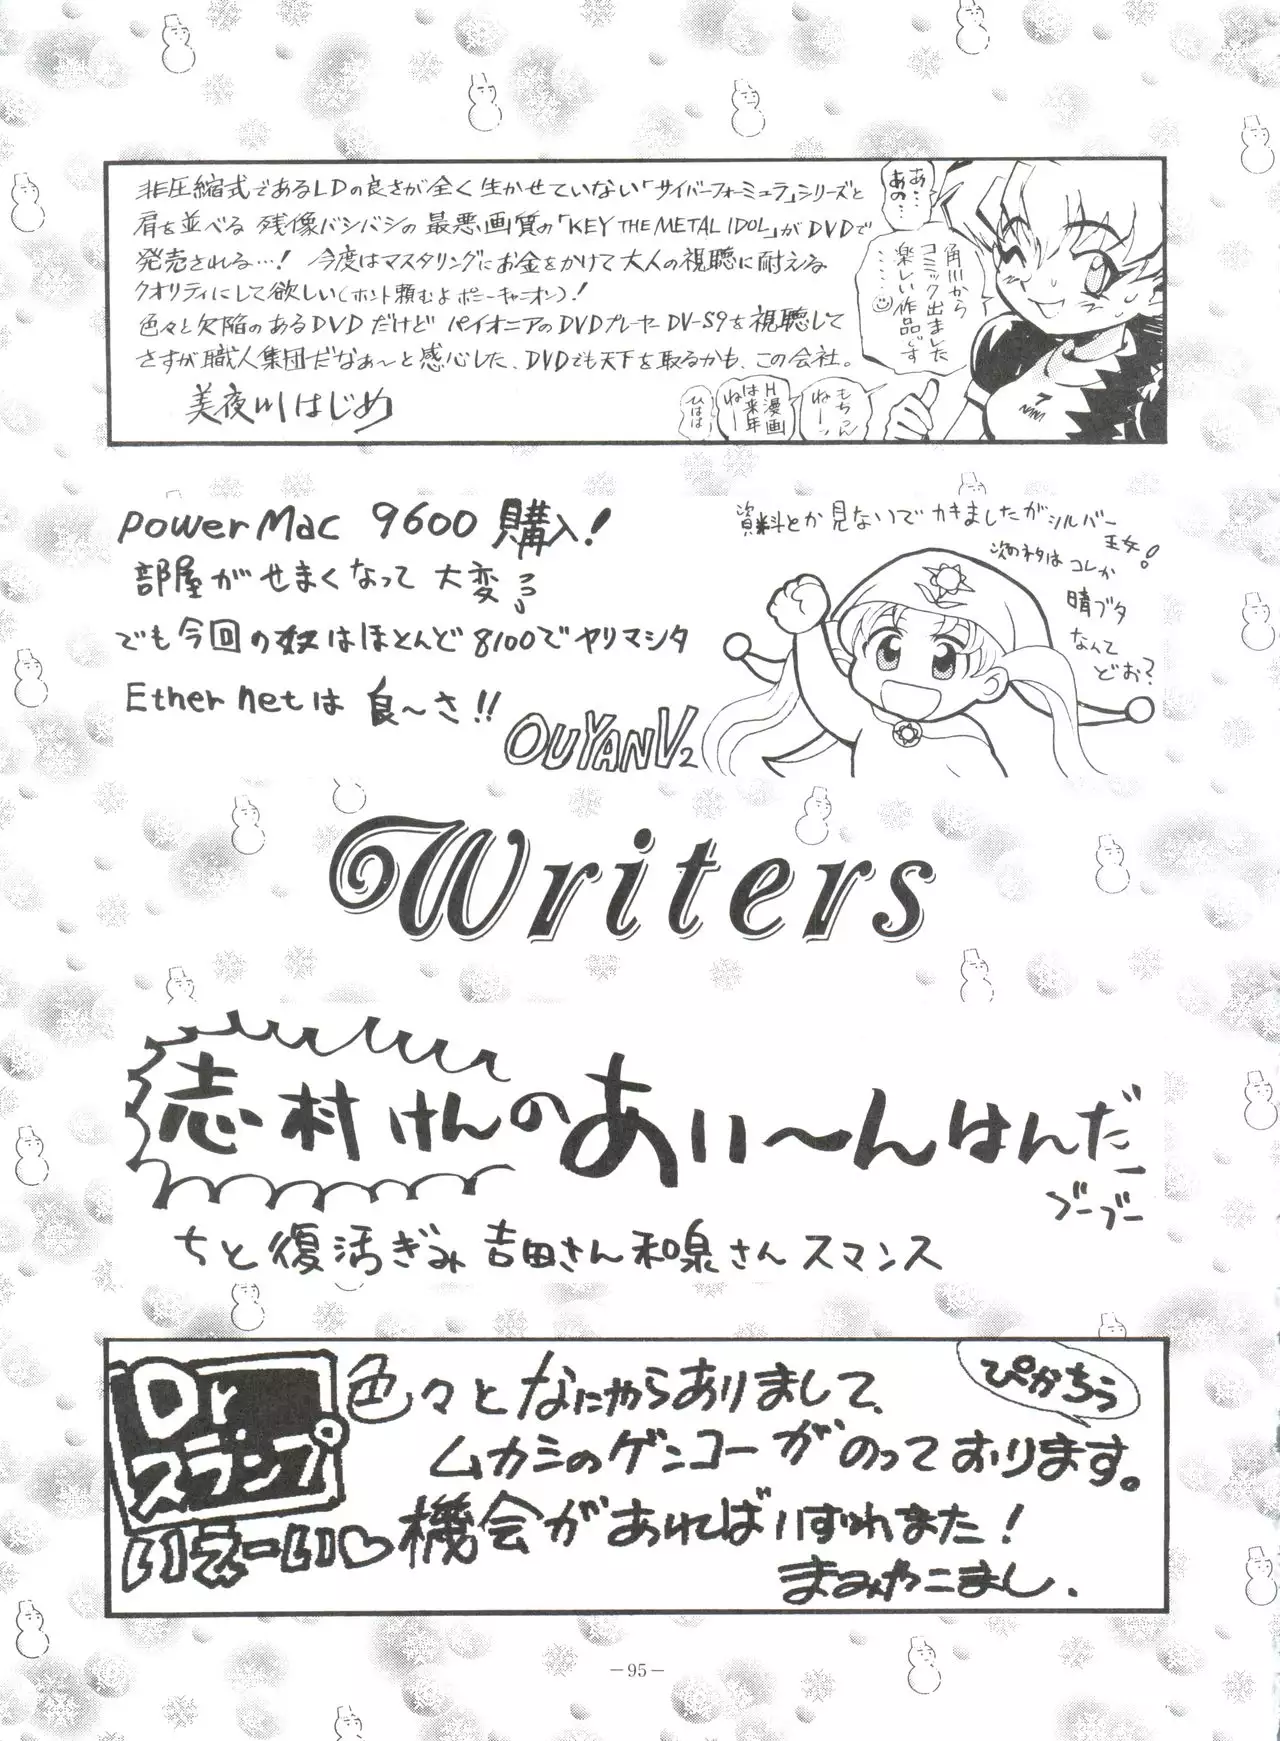 非圧縮式であるLDの良さが全く生かせていない「サイバーフォーミュラ」シリーズと
肩を並べる 残像バシバシの 最悪画質の「KEY THE METAL IDOL」がDVDで
発売される…! 今度はマスタリングにお金をかけて大人の視聴に耐える
クオリティにして欲しい(ホント頼むよポニーキャニオン)!
色々と欠陥のあるDVDだけど パイオニアのDVDプレーヤーDV-S9を視聴して
さすが職人集団だなぁ〜と感心した、DVDでも天下を取るかも、この会社。
美夜川はじめ
あ…
あの…
角川から
コミック出ました
楽しい作品です
……☺
もちろん
ねーッ
H漫画
は来年
ねー
ひはは
Power Mac 9600 購入!
部屋がせまくなって 大変
でも今回の奴はほとんど8100でヤリマシタ
Ether netは 良〜さ!!
OUYANV2
資料とか見ないでカキましたがシルバー
王女!
次のネタはコレか
晴ブタ
なんて
どお?
Writers
志村けんのあい〜んはんだー
ブーブー
ちと復活ぎみ 吉田さん和泉さんスマンス
Dr
スランプ
いえーい♡
ぴかちう
色々となにやらありまして、
ムカシのゲンコーがのっております。
機会があればいずれまた!
まみやこまし.
—95—